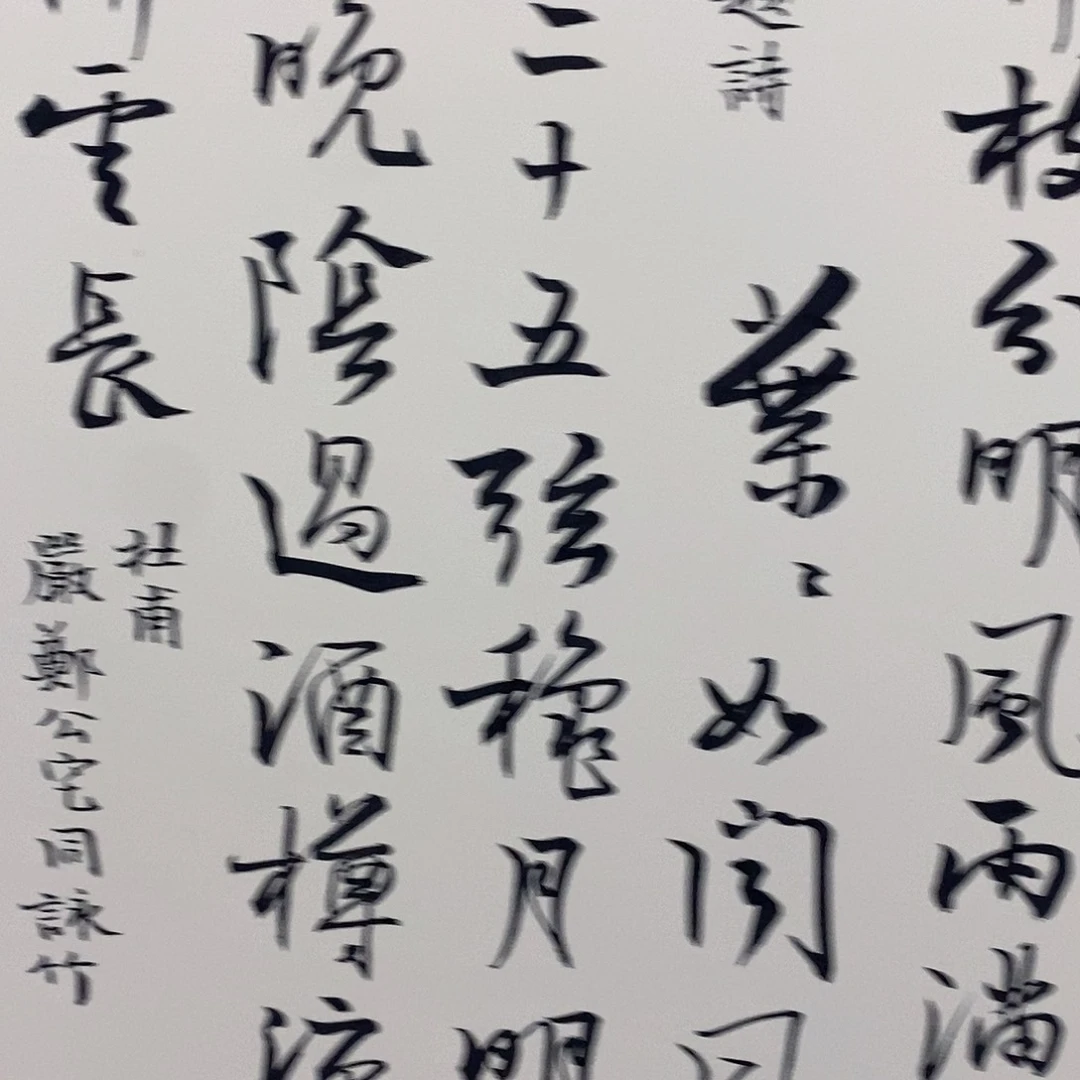 枝分明風雨
詩
葉〻如聞
二十五弦穐月明
晚陰過酒樽涼
雲長
杜甫
嚴鄭公宅同詠竹